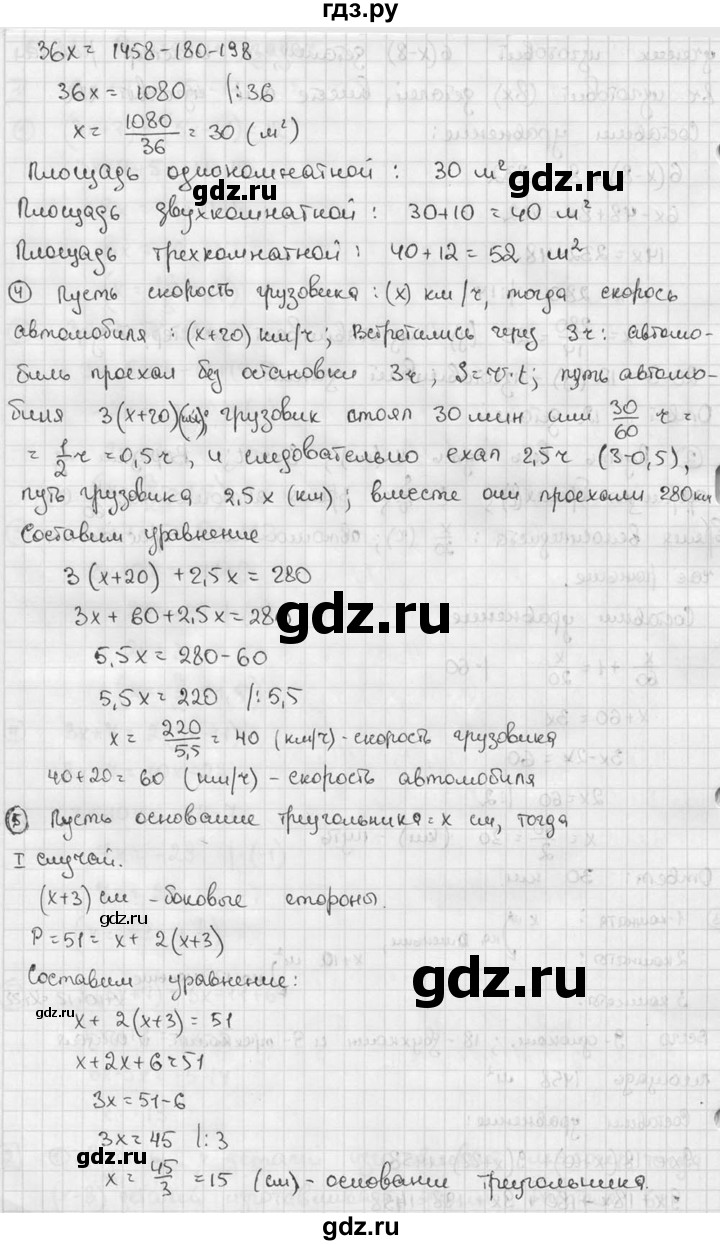 гдз.ру
36x = 1458-180-198
36x = 1080 |:36
x = 1080/36 = 30 (м²)
Площадь однокомнатной : 30 м²
gdz.ru
Площадь двухкомнатной : 30+10 = 40 м²
Площадь трехкомнатной : 40+12 = 52 м²
④ Пусть скорость грузовика : (x) км/ч, тогда скорось
автомобиля : (x+20) км/ч ; Встретились через 3ч : автомо-
биль проехал без остановки 3ч ; S = v·t ; путь автомо-
биля 3(x+20)(км); грузовик стоял 30 мин или 30/60 ч =
= 1/2 ч = 0,5ч , и следовательно ехал 2,5ч (3-0,5),
путь грузовика 2,5x (км) ; вместе они проехали 280км
Составим уравнение
3(x+20) + 2,5x = 280
gdz.ru
3x + 60 + 2,5x = 280
gdz.ru
5,5x = 280-60
5,5x = 220 |:5,5
x = 220/5,5 = 40 (км/ч) - скорость грузовика
40+20 = 60 (км/ч) - скорость автомобиля
⑤ Пусть основание треугольника = x см, тогда
I случай.
(x+3) см - боковые стороны.
gdz.ru
gdz.ru
P = 51 = x + 2(x+3)
Составим уравнение:
gdz.ru
gdz.ru
x + 2(x+3) = 51
x + 2x + 6 = 51
3x = 51-6
3x = 45 |:3
gdz.ru
x = 45/3 = 15 (см) - основании треугольника.
gdz.ru
gdz.ru